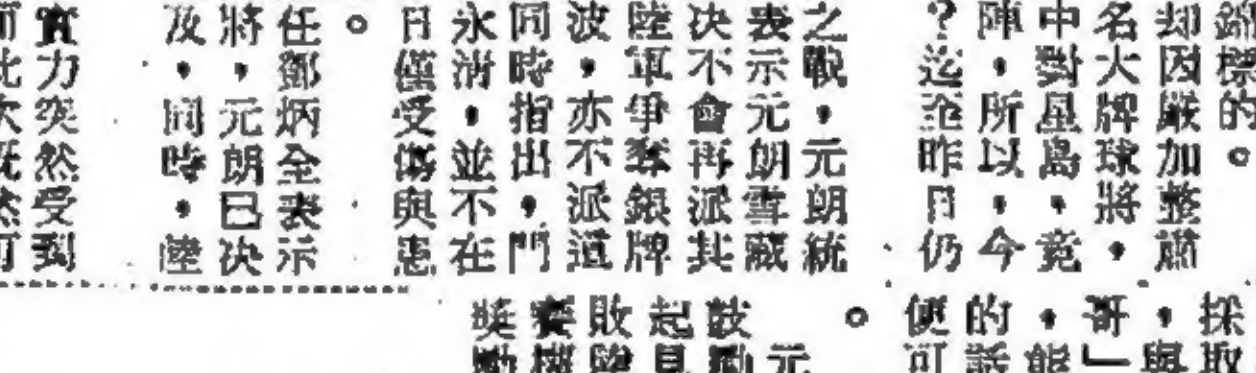 錦標的。
却因嚴加整肅
名大牌球將，
中對星島，竟
陣，所以，今
？迄至昨日仍
之戰，元朗統
表示元朗雪藏
决不會再派其
陸軍爭奪銀牌
波，亦不派道
同時指出，門
永滑，並不在
日僅受傷與患
。
任鄧炳全表示
將，元朗已决
及，同時，陸
實力突然受到
此次既然可
採取
，與
哥」
，能
的話
便可
。
元
鼓勵
起見
敗陸
賽
獎勵